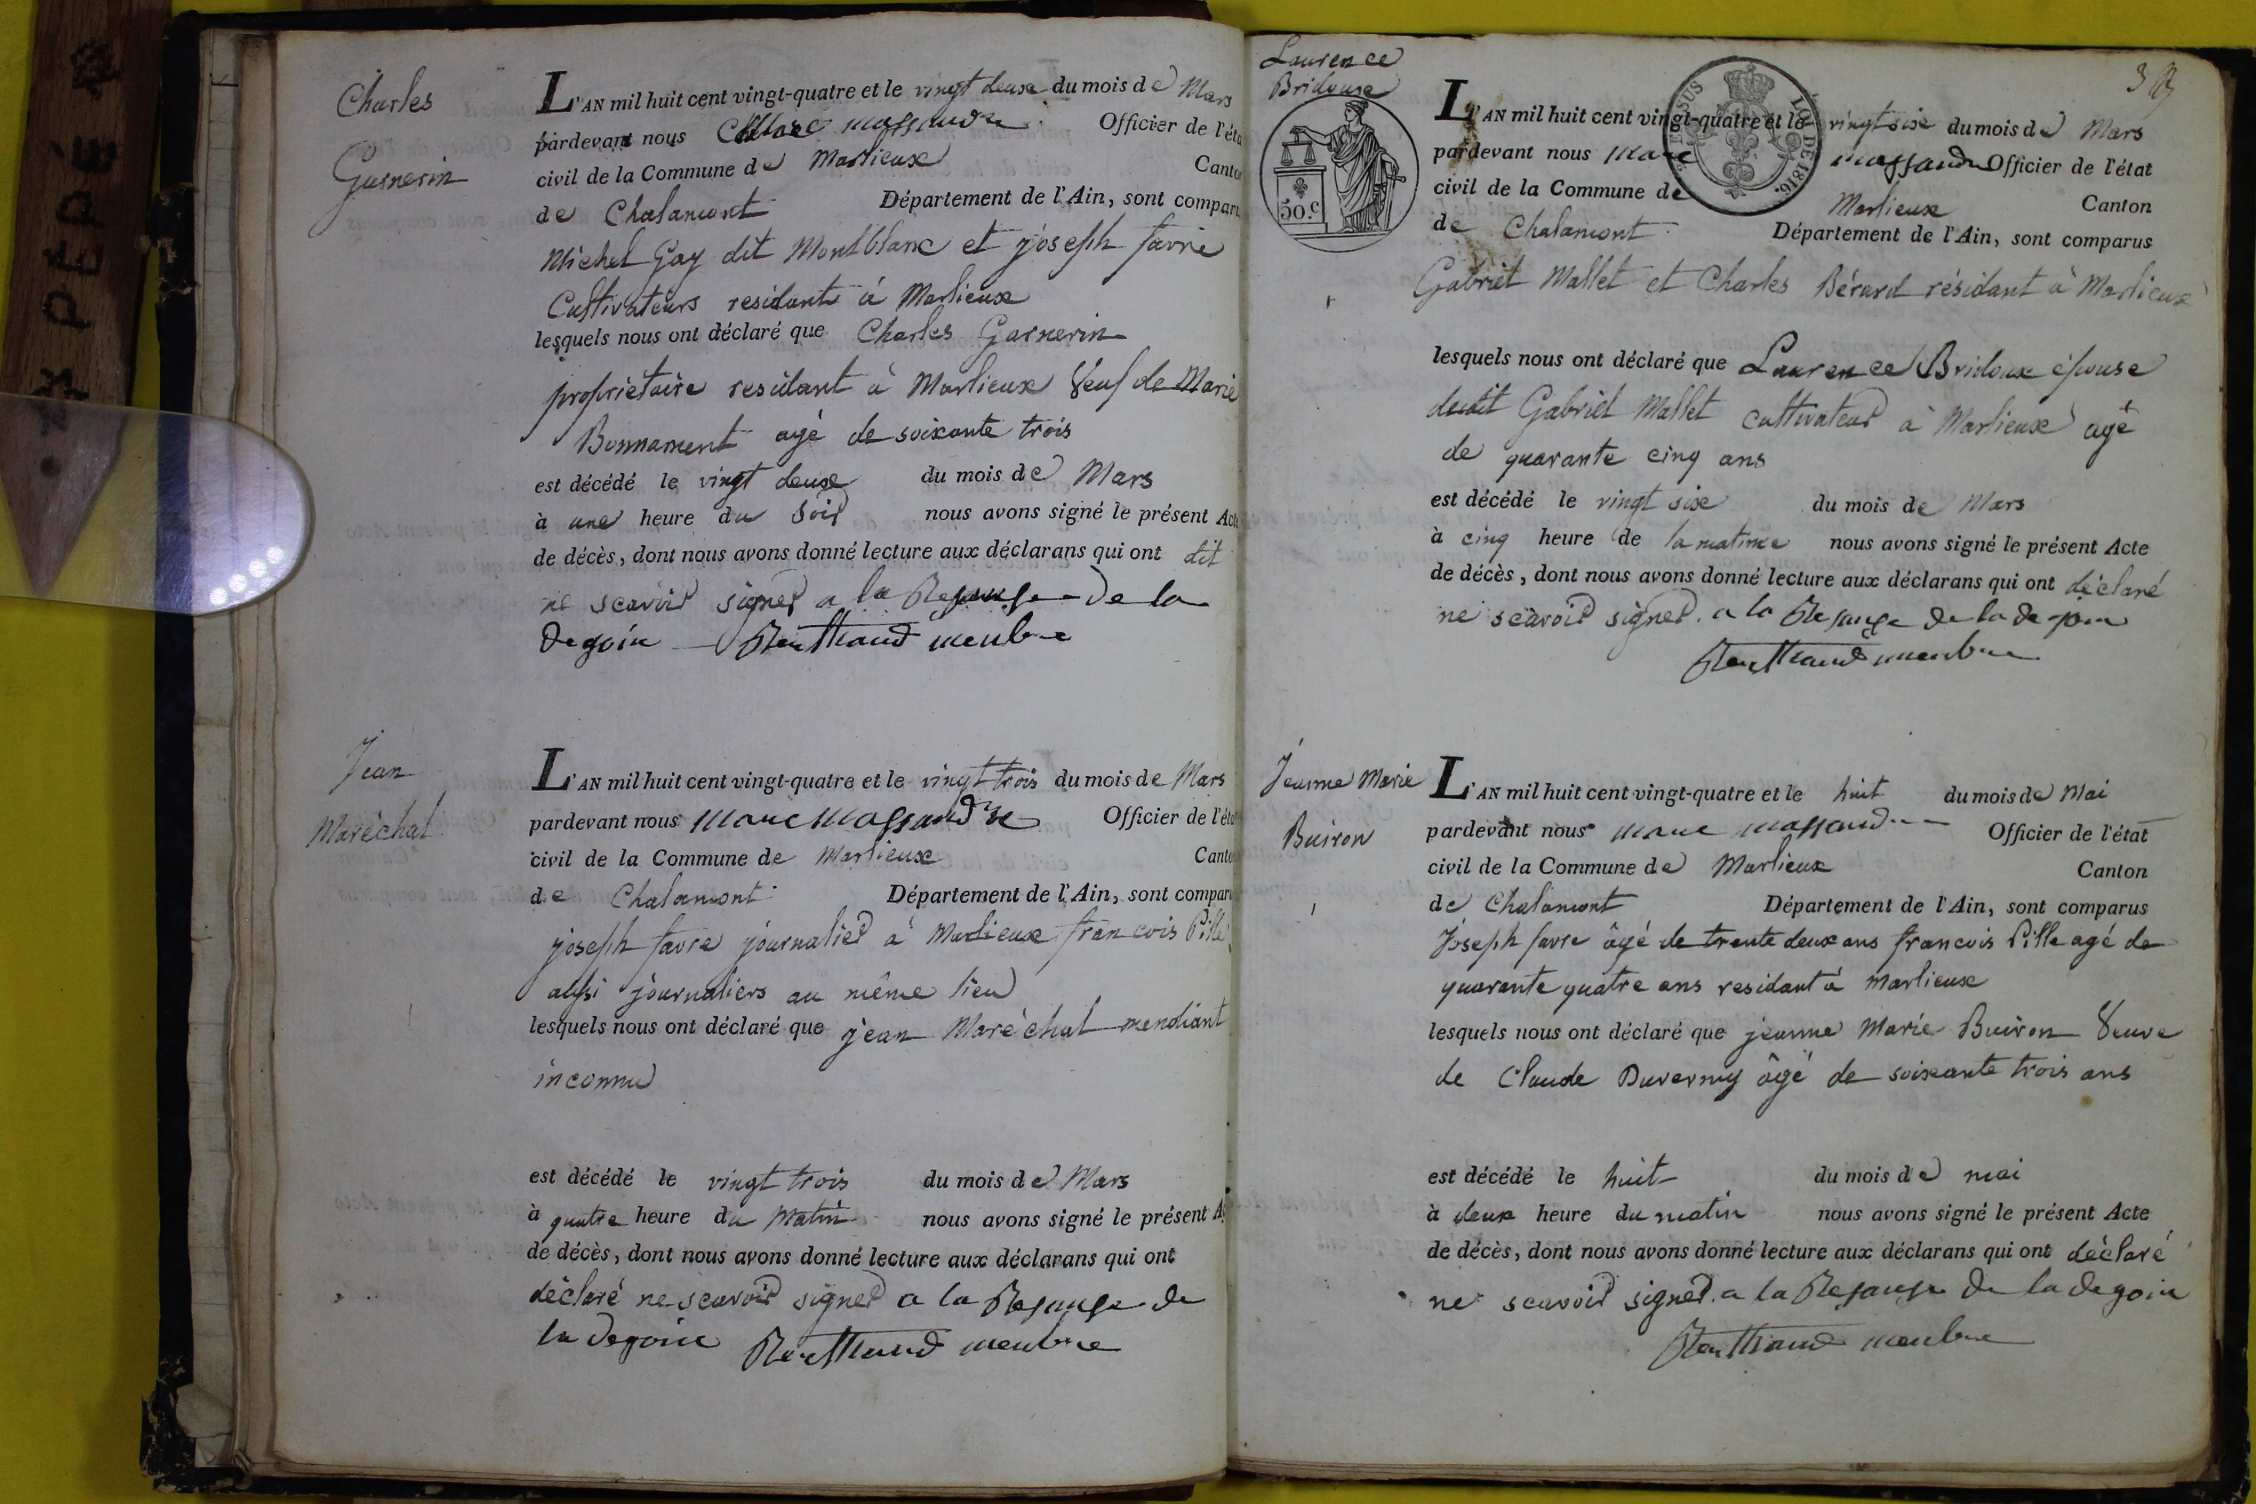 Charles
Garnerin
L'AN mil huit cent vingt-quatre et le vingt deux du mois de Mars
pardevant nous Marc massaud Officier de l'éta
civil de la Commune de Marlieux Canto
de Chalamont Département de l'Ain, sont compar
Michel Gay dit Montblanc et joseph favre
Cultivateurs residants à Marlieux
lesquels nous ont déclaré que Charles Garnerin
proprietaire residant à Marlieux Veuf de Marie
Bonnament agé de soixante trois
est décédé le vingt deux du mois de Mars
à une heure du Soir nous avons signé le présent Acte
de décès, dont nous avons donné lecture aux déclarans qui ont dit
ne scavoir signer a la de la
degoin meubre
Jean
Maréchal
L'AN mil huit cent vingt-quatre et le vingt trois du mois de Mars
pardevant nous Marc Massaud Officier de l'éta
civil de la Commune de Marlieux Canto
de Chalamont Département de l'Ain, sont compar
joseph favre journalier à Marlieux francois Pille
aussi journaliers au même lieu
lesquels nous ont déclaré que jean Maréchal mendiant
inconnu
est décédé le vingt trois du mois de Mars
à quatre heure du Matin nous avons signé le présent A
de décès, dont nous avons donné lecture aux déclarans qui ont
déclaré ne scavoir signer a la de
la degoin meubre
Laurence
Bridoux
50.c
SUS
LOI DE 1816.
L'AN mil huit cent vingt-quatre et le vingt six du mois de Mars
pardevant nous Marc massaud Officier de l'état
civil de la Commune de Marlieux Canton
de Chalamont Département de l'Ain, sont comparus
Gabriel Mallet et Charles Bérard résidant à Marlieux
lesquels nous ont déclaré que Laurence Bridoux épouse
dudit Gabriel Mallet cultivateur à Marlieux agé
de quarante cinq ans
est décédé le vingt six du mois de Mars
à cinq heure de la matinee nous avons signé le présent Acte
de décès, dont nous avons donné lecture aux déclarans qui ont déclaré
ne scavoir signer. a la de la degoin
meubre
Jeanne Marie
Buiron
L'AN mil huit cent vingt-quatre et le huit du mois de Mai
pardevant nous marc massaud Officier de l'état
civil de la Commune de Marlieux Canton
de Chalamont Département de l'Ain, sont comparus
Joseph favre âgé de trente deux ans francois Pille agé de
quarante quatre ans residant à Marlieux
lesquels nous ont déclaré que jeanne Marie Buiron Veuve
de Claude Duverny âgé de soixante trois ans
est décédé le huit du mois de mai
à deux heure du matin nous avons signé le présent Acte
de décès, dont nous avons donné lecture aux déclarans qui ont déclaré
ne scavoir signer. a la de la degoin
meubre